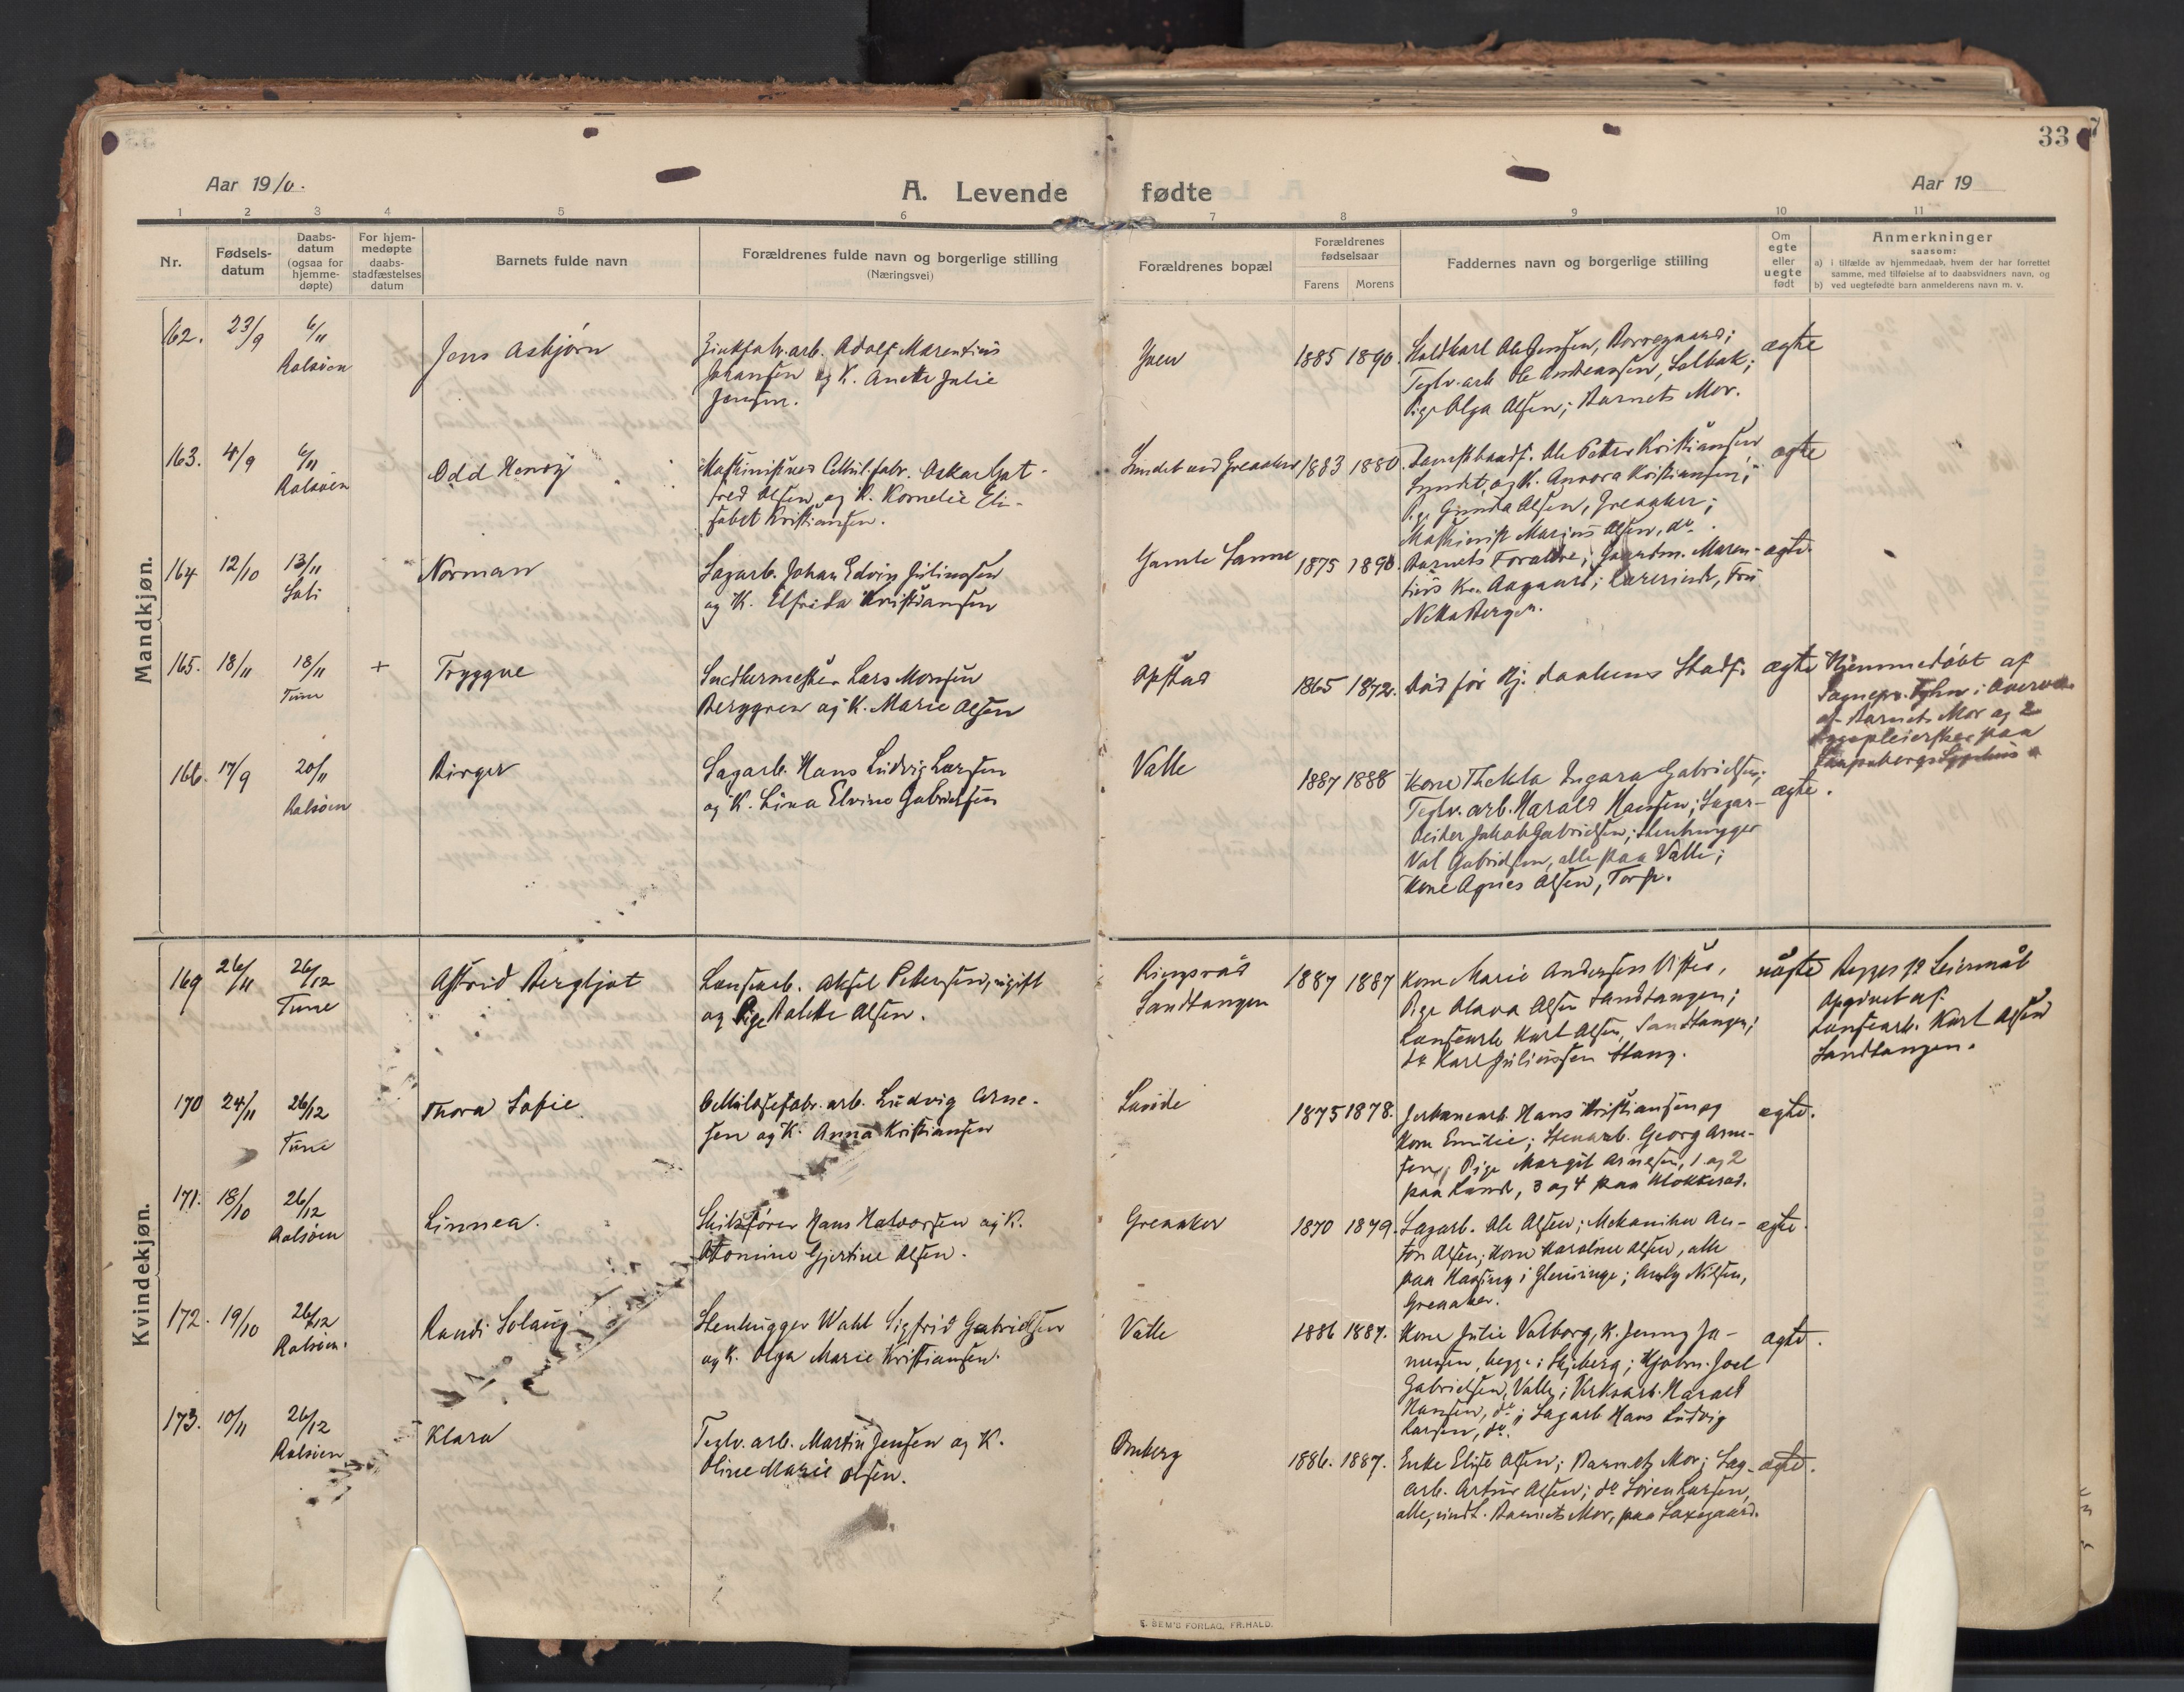 33
Aar 1910.
A. Levende fødte
Aar 19
1 2 3 4 5 6 7 8 9 10 11
Nr.
Fødsels-
datum
Daabs-
datum
(ogsaa for
hjemme-
døpte)
For hjem-
medøpte
daabs-
stadfæstelses
datum
Barnets fulde navn
Forældrenes fulde navn og borgerlige stilling
(Næringsvei)
Forældrenes bopæl
Forældrenes
fødselsaar
Farens Morens
Faddernes navn og borgerlige stilling
Om
egte
eller
uegte
født
Anmerkninger
saasom:
a) i tilfælde av hjemmedaab, hvem der har forrettet
samme, med tilføielse af to daabsvidners navn, og
b) ved uegtefødte barn anmelderens navn m. v.
Mandkjøn.
162. 23/9 6/11
Rolsøen
Jens Asbjørn
Zinkfabr.arb. Adolf Marentius
Johansen og K. Anette Julie
Jensen.
1885 1890.
Staldkarl Ole Jensen, Borregaard;
Teglv.arb Ole Andreassen, Solbak;
Pige Olga Olsen; Barnets Mor.
ægte
163. 4/9 6/11
Rolsøen
Odd Henry
Maskinist ved Cellul.fabr. Oskar Got-
fred Olsen og K. Kornelie Eli-
sabet Kristiansen.
Lundet ved Greaaker
1883 1880.
Ole Petter Kristiansen
Lundet, og K. Aurora Kristiansen;
Pige Gunda Olsen, Greaaker;
Maskinist Marius Olsen, do.
ægte
164 12/10 13/11
Soli
Norman
Sagarb. Johan Edvin Juliussen
og K. Elfrida Kristiansen
Gamle Sanne
1875 1890.
Barnets Forældre; Gaardm. Maren-
tius Kr. Aagaard; Lærerinde, Frü
Berger.
ægte.
165. 18/11 18/11 +
Tune
Tryggve
Snedkermester Lars Monsen
Berggren og K. Marie Olsen
Opstad
1865 1872.
Død før Hj. daabens Stadf.
ægte
Hjemmedøbt af
Sognepr. i Overvær
af Barnets Mor og 2
Sygepleiersker paa
166. 17/9 20/11
Rolsøen
Birger
Sagarb. Hans Ludvig Larsen
og K. Lina Elvine Gabrielsen
Valle
1887 1888
Kone Thekla Ingara Gabrielsen;
Teglv.arb. Harald Hansen; Sagar-
beider Jakob Gabrielsen; Stenhugger
Val Gabrielsen, alle paa Valle;
Kone Agnes Olsen, Torp.
ægte.
Kvindekjøn.
169 26/11 26/12
Tune
Astrid Bergljot
Lensearb. Aksel Pettersen, ugift
og Pige Bolette Olsen.
Ringsrød
Sandtangen
1887 1887
Kone Marie Andersen Visteo,
Pige Olava Olsen Sandtangen;
Lensearb Karl Olsen, Sandtangen;
do Karl Juliussen Stang.
uægte
Begges 1ste Leiermål
Opgivet af:
Lensearb. Karl Olsen
Sandtangen.
170 24/11 26/12
Tune
Thora Sofie
Cellulosefabr. arb. Ludvig Arne-
sen og K. Anna Kristiansen
Lunde
1875 1878.
Jerbanearb. Hans Kristiansen og
Kone Emilie; Stenarb. Georg Arne-
sen; Pige Margit Arnesen, 1 og 2
paa Lunde, 3 og 4 paa Klokkerød.
ægte.
171. 18/10 26/12
Rolsøen
Linnea.
Skibsfører Hans Halvorsen og K.
Atomine Gjertine Olsen.
Greaaker
1870 1879.
Sagarb. Ole Olsen; Mekaniker An-
ton Olsen; Kone Karoline Olsen, alle
paa i Glemminge; Nilsen,
Greaaker.
ægte.
172. 19/10 26/12
Rolsøen.
Randi Solaug
Stenhugger Wahl Sigfrid Gabrielsen
og K. Olga Marie Kristiansen.
Valle
1886 1887.
Kone Julie Valborg, K. Jenny Jo-
nassen, begge i Skjeberg; Joel
Gabrielsen, Valle; Verksarb. Harald
Hansen, do; Sagarb Hans Ludvig
Larsen, do.
ægte.
173. 10/11 26/12
Rolsøen
Klara
Teglv. arb. Martin Jensen og K.
Oline Marie Olsen.
Omberg
1886. 1887.
Enke Elise Olsen; Barnets Mor; Sag-
arb. Artur Olsen; do Søren Larsen,
alle, undt. Barnets Mor, paa Laxegaard.
ægte.
E. SEM'S FORLAG, FR.HALD.